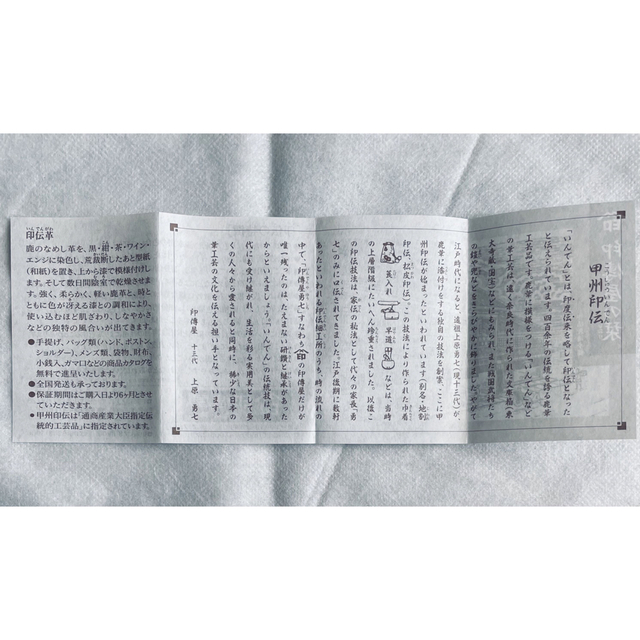 甲州印伝
こうしゅういんでん
「いんでん」とは、印度伝来を略して印伝となった
と伝えられています。四百余年の伝統を誇る鹿革
工芸品です。鹿革に模様をつける「いんでん」など
の革工芸は、遠く奈良時代に作られた文庫箱(東
大寺蔵・国宝)などにもみられ、また戦国武将たち
江戸時代になると、遠祖上原勇七(現十三代)が、
鹿革に漆付けをする独自の技法を創案、ここに甲
州印伝が始まったといわれています(別名・地割
印伝、松皮印伝)。この技法により作られた巾着
、莨入れ、早道などは、当時
の上層階級にたいへん珍重されました。以後こ
の印伝技法は、家伝の秘法として代々の家長「勇
七」のみに口伝されてきました。江戸後期に数軒
あったといわれる印伝細工所のうち、時の流れの
中で、「印傳屋勇七」すなわち の印傳屋だけが
唯一残ったのは、たえまない研鑽と継承があった
からといえましょう。「いんでん」の伝統技は、現
代にも受け継がれ、生活を彩る実用美として登
くの人々から愛されると同時に、稀少な日本の
革工芸の文化を伝える担い手となっています。
印傳屋 十三代 上原勇七
いんでんがわ
印伝革
鹿のなめし革を、黒・紺・茶・ワイン・
エンジに染色し、荒裁断したあと型紙
(和紙)を置き、上から漆で模様付けし
ます。そして数日間室で乾燥させま
す。強く、柔らかく、軽い鹿革と、時と
ともに色が冴える漆との調和により、
使い込むほど肌ざわり、しなやかさ
などの独特の風合いが出てきます。
●手提げ、バッグ類(ハンド、ボストン、
ショルダー)、メンズ類、袋物、財布、
小銭入、ガマ口などの商品カタログを
無料で進呈いたします。
●全国発送も承っております。
●保証期間はご購入日より6ヶ月とさせ
ていただきます。
●甲州印伝は「通商産業大臣指定伝
統的工芸品」に指定されています。